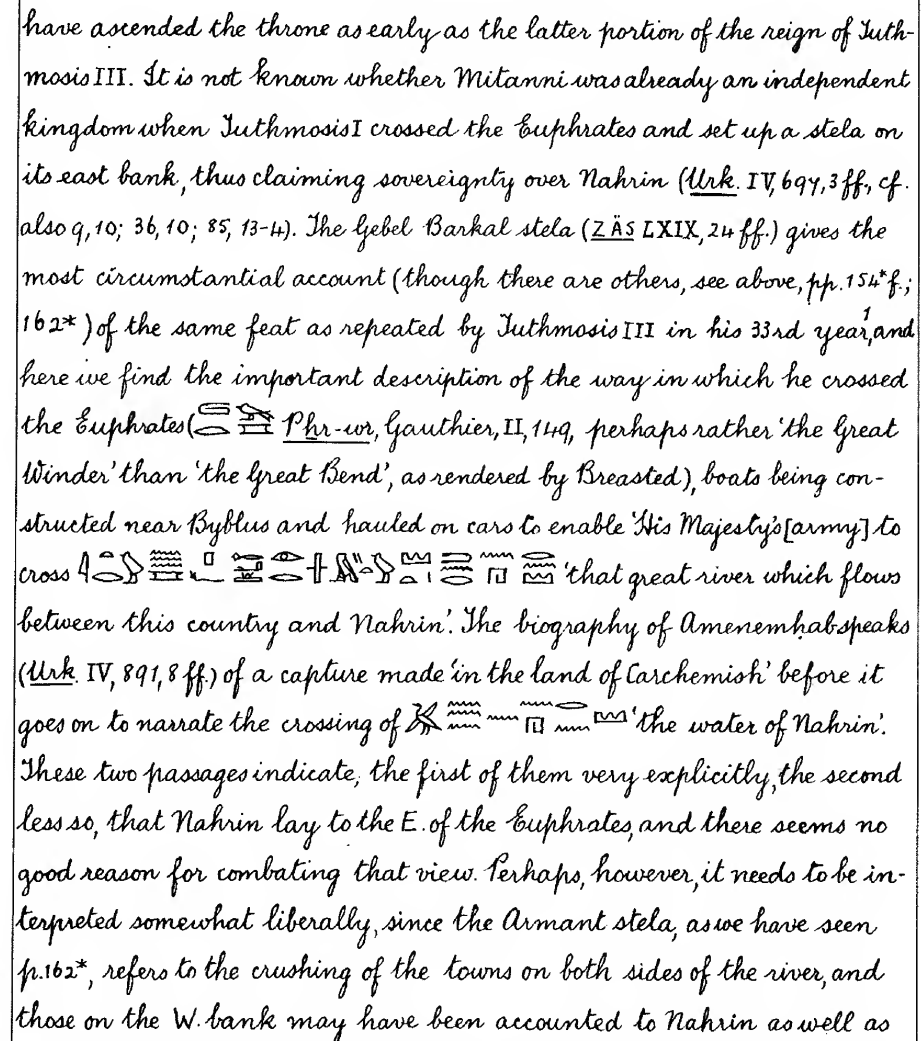 have ascended the throne as early as the latter portion of the reign of Tuth-
mosis III. It is not known whether Mitanni was already an independent
kingdom when Tuthmosis I crossed the Euphrates and set up a stela on
its east bank, thus claiming sovereignty over Nahrin (Urk. IV, 697, 3 ff., cf.
also 9, 10; 36, 10; 85, 13-4). The Gebel Barkal stela (ZÄS LXIX, 24 ff.) gives the
most circumstantial account (though there are others, see above, pp. 154* f.;
162*) of the same feat as repeated by Tuthmosis III in his 33rd year,¹ and
here we find the important description of the way in which he crossed
the Euphrates ( Pḫr-wr, Gauthier, II, 149, perhaps rather 'the Great
Winder' than 'the Great Bend', as rendered by Breasted), boats being con-
structed near Byblus and hauled on cars to enable 'His Majesty's [army] to
cross 'that great river which flows
between this country and Nahrin'. The biography of Amenemḥab speaks
(Urk. IV, 891, 8 ff.) of a capture made 'in the land of Carchemish' before it
goes on to narrate the crossing of 'the water of Nahrin'.
These two passages indicate, the first of them very explicitly, the second
less so, that Nahrin lay to the E. of the Euphrates, and there seems no
good reason for combating that view. Perhaps, however, it needs to be in-
terpreted somewhat liberally, since the Armant stela, as we have seen
p. 162*, refers to the crushing of the towns on both sides of the river, and
those on the W. bank may have been accounted to Nahrin as well as